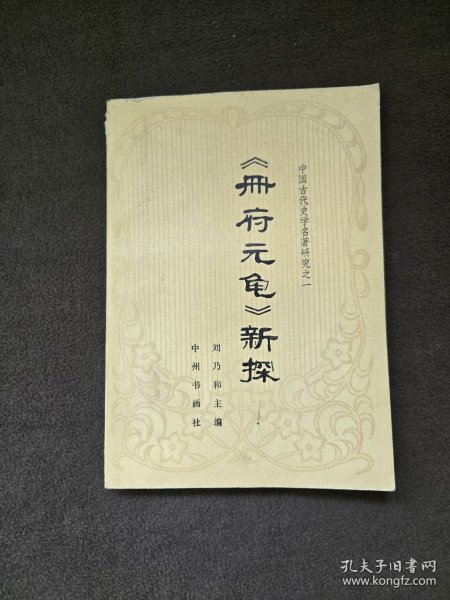 中国古代史学名著研究之一
《册府元龟》新探
刘乃和主编
中州书画社
孔夫子旧书网
www.kongfz.com